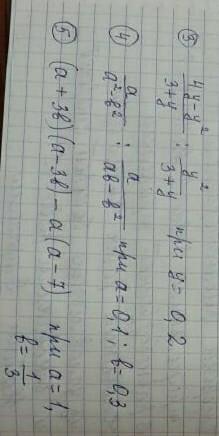 ③ (4y-y²)/(3+y) : y²/(3+y) при y=0,2
④ a/(a²-b²) : a/(ab-b²) при a=0,1; b=0,3
⑤ (a+3b)(a-3b)-a(a-7) при a=1,
b=1/3